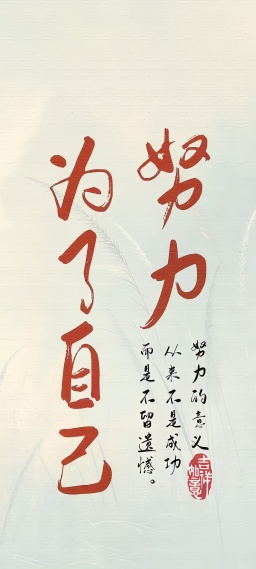 努力
为了自己
努力的意义
从来不是成功
而是不留遗憾。
吉祥如意